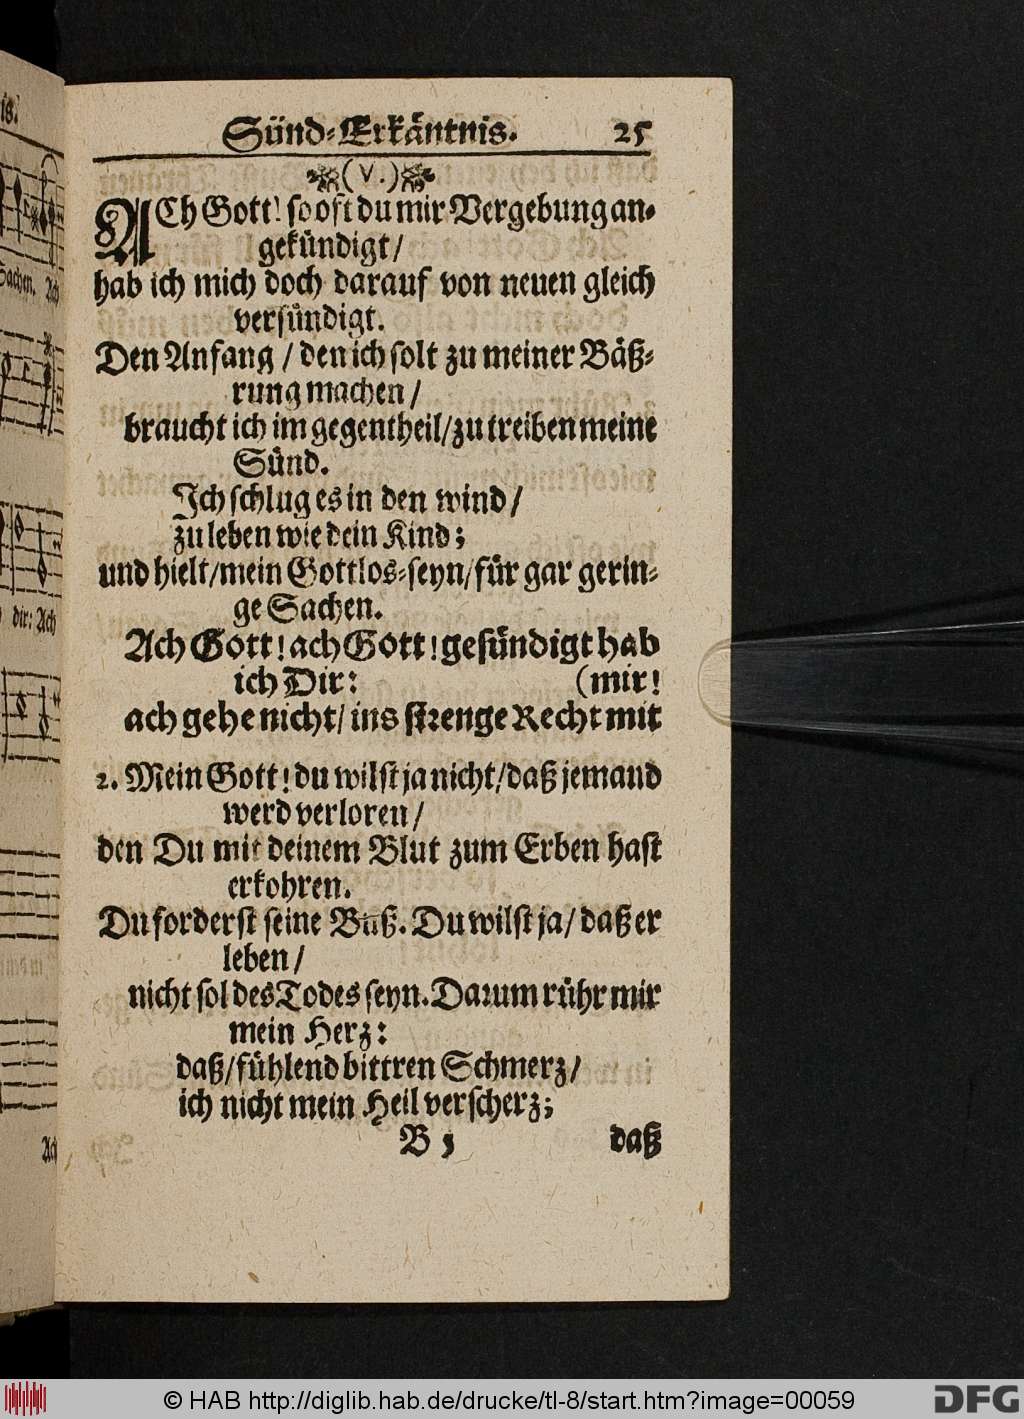 Sünd-Erkäntnis. 25
(V.)
ACh Gott! so oft du mir Vergebung an-
gekündigt/
hab ich mich doch darauf von neuen gleich
versündigt.
Den Anfang / den ich solt zu meiner Bäß-
rung machen /
braucht ich im gegentheil/zu treiben meine
Sünd.
Ich schlug es in den wind /
zu leben wie dein Kind;
und hielt/mein Gottlos-seyn/für gar gerin-
ge Sachen.
Ach Gott! ach Gott! gesündigt hab
ich Dir: (mir!
ach gehe nicht/ ins strenge Recht mit
2. Mein Gott! du wilst ja nicht/daß jemand
werd verloren /
den Du mit deinem Blut zum Erben hast
erkohren.
Du forderst seine Buß. Du wilst ja/ daß er
leben /
nicht sol des Todes seyn. Darum rühr mir
mein Herz:
daß/fühlend bittren Schmerz/
ich nicht mein Heil verscherz;
B 5 daß
is.
Sachen. Ach
dir: Ach
Ach
© HAB http://diglib.hab.de/drucke/tl-8/start.htm?image=00059
DFG